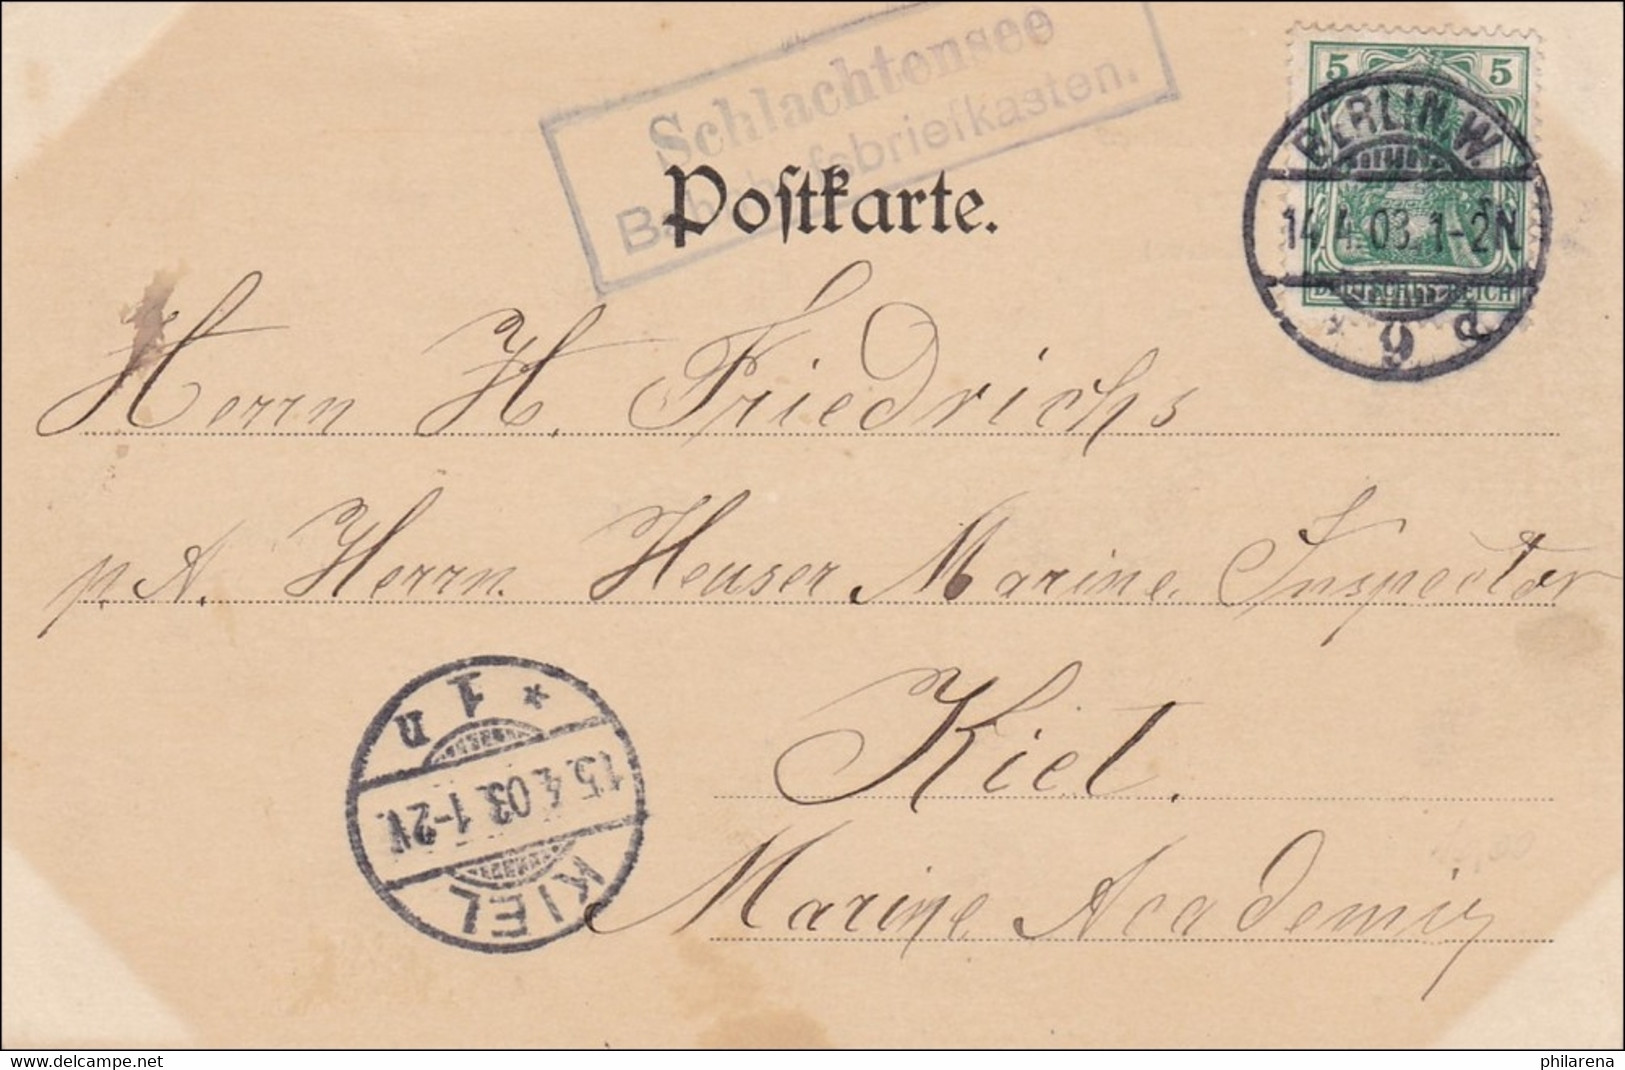 Schlachtensee
Bahnhofsbriefkasten.
Postkarte.
5 5
BERLIN. W.
14.4.03.1-2N
DEUTSCHES REICH
* 9 d
Herrn H. Friedrichs
p. A. Herrn. Heuser Marine. Inspector
Kiel.
Marine Academiy
KIEL
15.4.03.1-2V.
* 1 n
www.delcampe.net
philarena